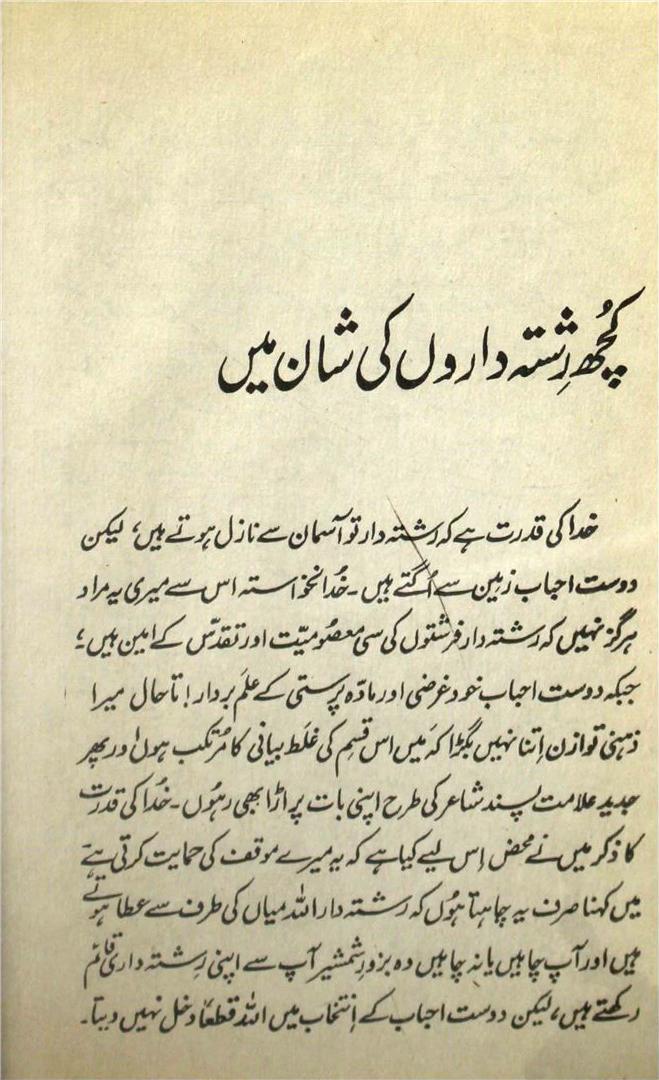 کچھ رِشتہ داروں کی شان میں
خدا کی قدرت ہے کہ رشتہ دار تو آسمان سے نازل ہوتے ہیں، لیکن
دوست احباب زمین سے اُگتے ہیں۔ خُدانخواستہ اس سے میری یہ مراد
ہرگز نہیں کہ رشتہ دار فرشتوں کی سی معصُومیّت اور تقدّس کے امین ہیں؛
جبکہ دوست احباب خود غرضی اور مادّہ پرستی کے علَم بردار! تاحال میرا
ذہنی توازن اِتنا نہیں بگڑا کہ مَیں اس قسِم کی غلَط بیانی کا مُرتکب ہوں اور پھر
جدید علامت پسند شاعر کی طرح اپنی بات پر اڑا بھی رہُوں۔ خُدا کی قدرت
کا ذکر میں نے محض اِس لیے کیا ہے کہ یہ میرے موقف کی حمایت کرتی ہے
میں کہنا صرف یہ چاہتا ہوُں کہ رشتہ دار اللہ میاں کی طرف سے عطا ہوئے
ہیں اور آپ چاہیں یا نہ چاہیں وہ بزورِ شمشیر آپ سے اپنی رِشتہ داری قائم
رکھتے ہیں، لیکن دوست احباب کے اِنتخاب میں اللہ قطعاً دخل نہیں دیتا۔